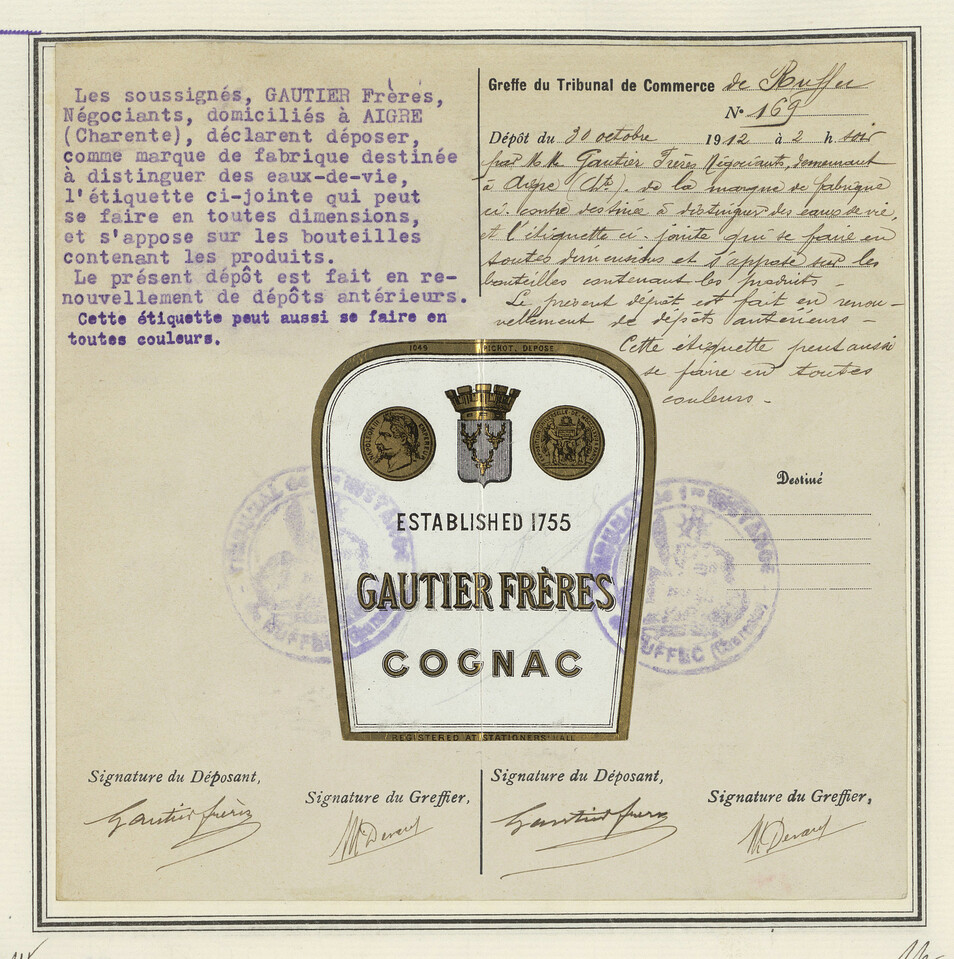 Les soussignés, GAUTIER Frères,
Négociants, domiciliés à AIGRE
(Charente), déclarent déposer,
comme marque de fabrique destinée
à distinguer des eaux-de-vie,
l'étiquette ci-jointe qui peut
se faire en toutes dimensions,
et s'appose sur les bouteilles
contenant les produits.
Le présent dépôt est fait en re-
nouvellement de dépôts antérieurs.
Cette étiquette peut aussi se faire en
toutes couleurs.
Greffe du Tribunal de Commerce de Ruffec
N° 169
Dépôt du 30 octobre 1912 à 2 h. soir
par MM Gautier Frères Négociants, demeurant
à Aigre (Cte). de la marque de fabrique
ci-contre destinée à distinguer des eaux de vie,
et l'étiquette ci-jointe qui se faire en
toutes dimensions et s'appose sur les
bouteilles contenant les produits.
Le présent dépôt est fait en renou-
vellement de dépôts antérieurs -
Cette etiquette peut aussi
se faire en toutes
couleurs -
Destiné
1049 PICHOT, DEPOSE
NAPOLEON III EMPEREUR
ESTABLISHED 1755
GAUTIER FRÈRES
COGNAC
REGISTERED AT STATIONERS' HALL
TRIBUNAL de 1re INSTANCE
RUFFEC
TRIBUNAL de 1re INSTANCE
RUFFEC (Charente)
Signature du Déposant,
Gautier frères
Signature du Greffier,
Signature du Déposant,
Gautier frères
Signature du Greffier,